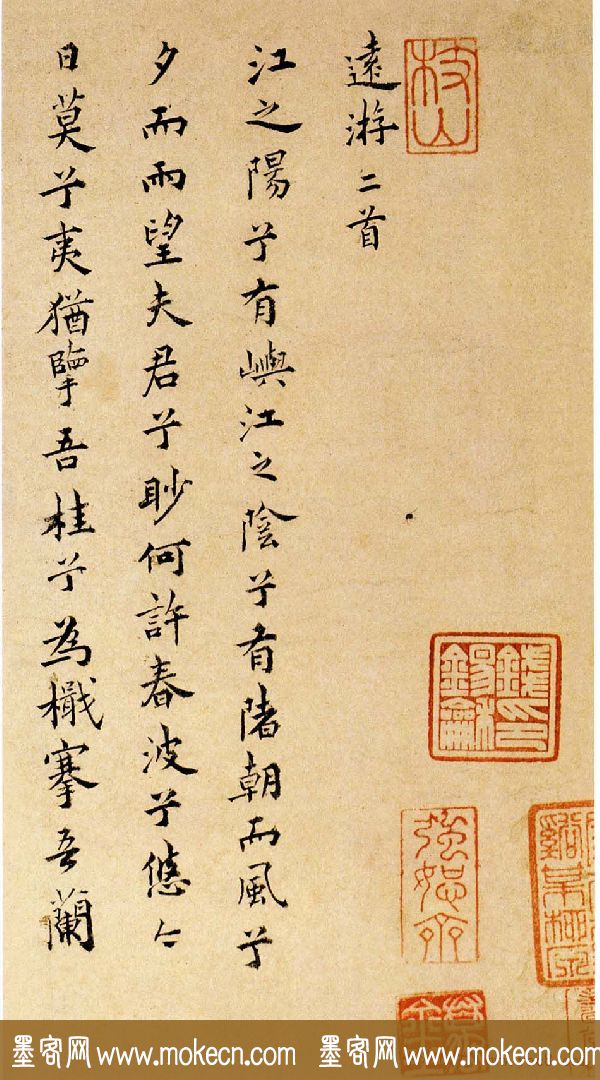 枝山
遠游二首
江之陽兮有嶼江之陰兮有陼朝而風兮
夕而雨望夫君兮眇何許春波兮悠々
日莫兮夷猶擥吾桂兮為檝搴吾蘭
強恕齋
墨客网 www.mokecn.com 墨客网 www.mokecn.com